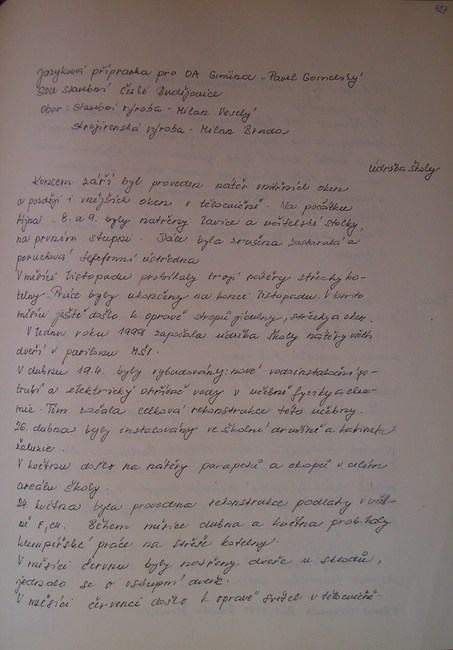 427
Jazyková přípravka pro OA Gmünd - Pavel
SOU stavební České Budějovice
Obor: Stavební výroba - Milan Veselý
Strojírenská výroba - Milan Brada
Údržba školy
Koncem září byl proveden nátěr vnitřních oken
a později i vnějších oken v tělocvičně. Na počátku
října - 8. a 9. byly natřeny lavice a učitelské stolky,
na prvním stupni. Dále byla zrušena zastaralá a
poruchová telefonní ústředna
V měsíci listopadu probíhaly trojí nátěry střechy ko-
telny. Práce byly ukončeny na konci listopadu. V tomto
měsíci ještě došlo k opravě stropů jídelny, střechy a oken.
V lednu roku 1999 započala údržba školy nátěry všech
dveří v pavilonu MŠ1.
V dubnu 19.4. byly vybudovány: nové vodoinstalační po-
trubí a elektrický ohřívač vody v učebně fyziky a che-
mie. Tím začala celková rekonstrukce této učebny.
26. dubna byly instalovány ve školní družině a kabinetu
žaluzie.
V květnu došlo na nátěry parapetů a okapů v celém
areálu školy.
24. května byla provedena rekonstrukce podlahy v učeb-
ně F, CH. Během měsíce dubna a května probíhaly
klempířské práce na střeše kotelny.
V měsíci červnu byly natřeny dveře u skladů,
jednalo se o vstupní dveře.
V měsíci červenci došlo k opravě světel v tělocvičně.